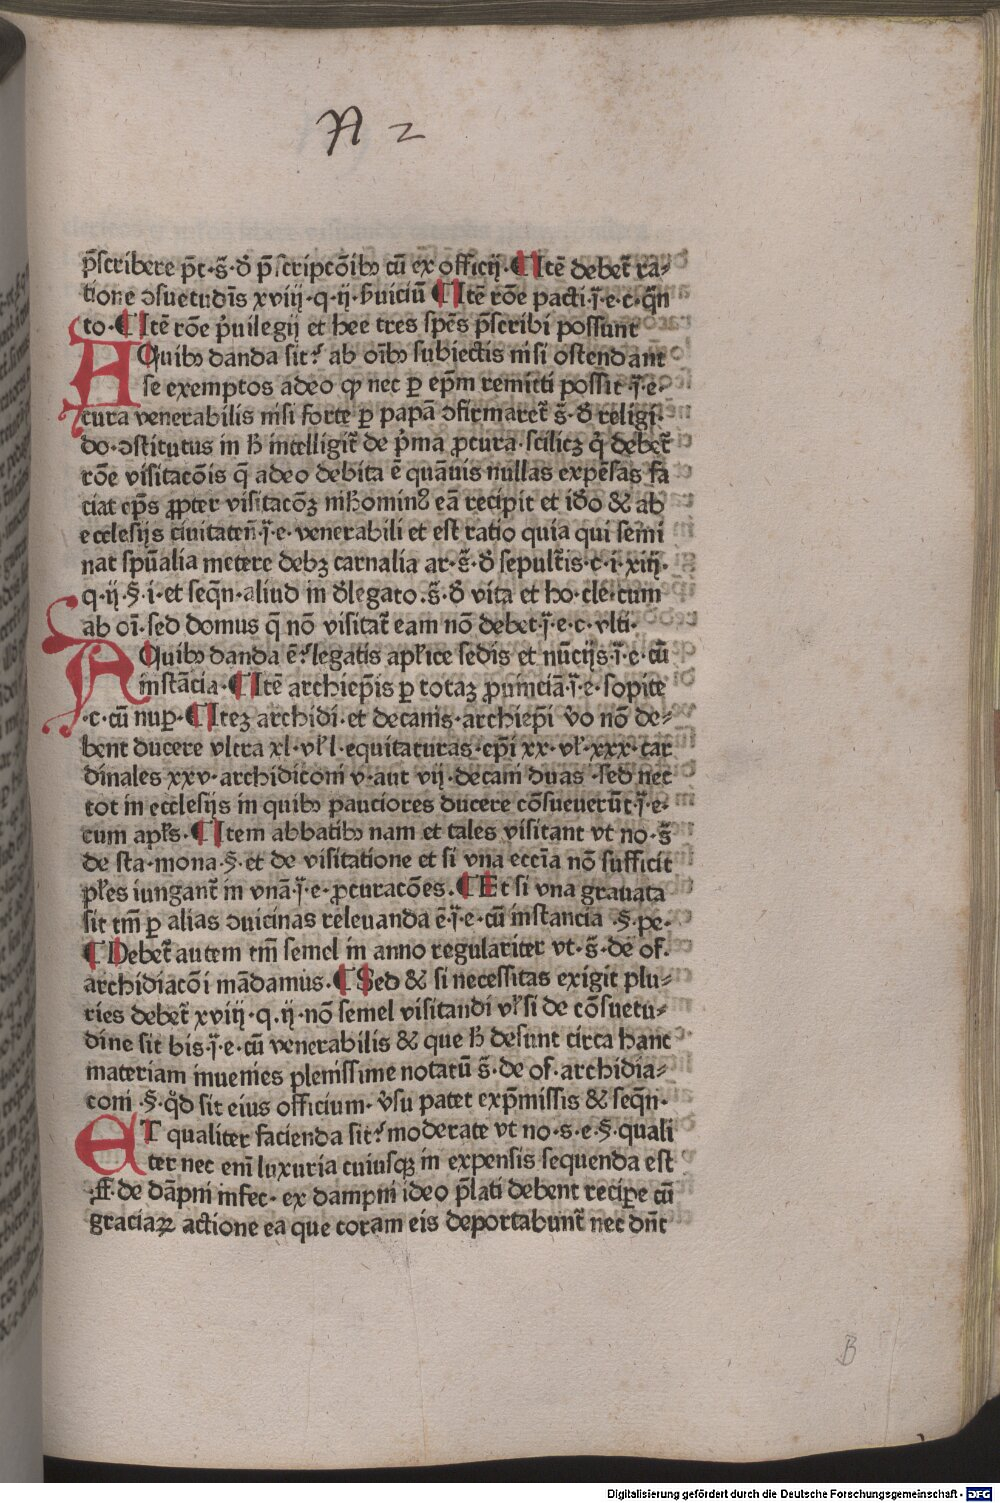 A 2
p̄scribere pt̄·s̄·ð p̄scripcõibꝫ cū ex officij·¶Itē debet̄ ra⸗
tione ↄsuetudīs xviij·q·ij·h̄uiciū ¶Itē rōe pacti·j̄·e·c·q̄n
to·¶Itē rōe p̓uilegij et hee tres spēs p̄scribi possunt
A Quibꝫ danda sit? ab oībꝫ subiectis nisi ostendant
se exemptos adeo ꝙ nec ꝑ ep̄m remitti possit·j̄·e·
cura venerabilis nisi forte ꝑ papā ↄfirmaret̄ s̄·ð religi·
do·ↄstitutus in h̄ intelligit̄ de p̓ma ꝓcura·scilicꝫ q̄ debet̄
rōe visitacōis q̄ adeo debita ē quāuis nullas expēsas fa
ciat ep̄s ꝓpter visitacōꝫ nihomin⁹ eā recipit et iðo & ab
ecclesijs ciuitateñ·j̄·e·venerabili et est ratio quia qui semi
nat spūalia metere debꝫ carnalia ar·s̄·ð sepult̄is·c·i·xiij·
q·ij·§·i·et seq̄n·aliud in ðlegato·s̄·ð vita et ho·cle·cum
ab oī·sed domus q̄ nō visitat̄ eam nō debet·j̄·e·c·vlti·
A Quibꝫ danda ē? legatis apl̄ice sedis et nūcijs·j̄·e·cū
instācia·¶Itē archiep̄is ꝑ totaꝫ ꝓuinciā·j̄·e·sopite
·c·cū nuꝑ·¶Iteꝫ archidi·et decanis·archiep̄i v̓o nō de⸗
bent ducere vltra xl·vl̄ l·equitaturas·ep̄i xx·vl̄·xxx·car
dinales xxv·archidiconi v·aut vij·decani duas·sed nec
tot in ecclesijs in quibꝫ pauciores ducere cōsueuerūt·j̄·e·
cum apl̄s·¶Item abbatibꝫ nam et tales visitant vt no·s̄
de sta·mona·§·et de visitatione et si vna ecc̄ia nō sufficit
pl̄es iungant̄ in vnā·j̄·e·ꝓcuracōes·¶Et si vna grauata
sit tm̄ ꝑ alias ↄuicinas releuanda ē·j̄·e·cū instancia·§·pe·
¶Debet̄ autem tm̄ semel in anno regulariter vt·s̄·de of·
archidiacōi mādamus·¶Sed & si necessitas exigit plu⸗
ries debet̄ xviij·q·ij·nō semel visitandi vl̄ si de cōsuetu⸗
dine sit bis·j̄·e·cū venerabilis & que h̄ desunt circa hanc
materiam inuenies plenissime notatū s̄·de of·archidia⸗
coni·§·q̊d sit eius officium·v̓su patet exp̄missis & seq̄n·
ET qualiter facienda sit? moderate vt no·s·e·§·quali
ter nec enī luxuria cuiusqꝫ in expensis sequenda est
·ff·de dāpni infec·ex dampni ideo p̄lati debent reciꝑe cū
graciaꝝ actione ea que coram eis deportabunt̄ nec dn̄t
B
Digitalisierung gefördert durch die Deutsche Forschungsgemeinschaft - DFG